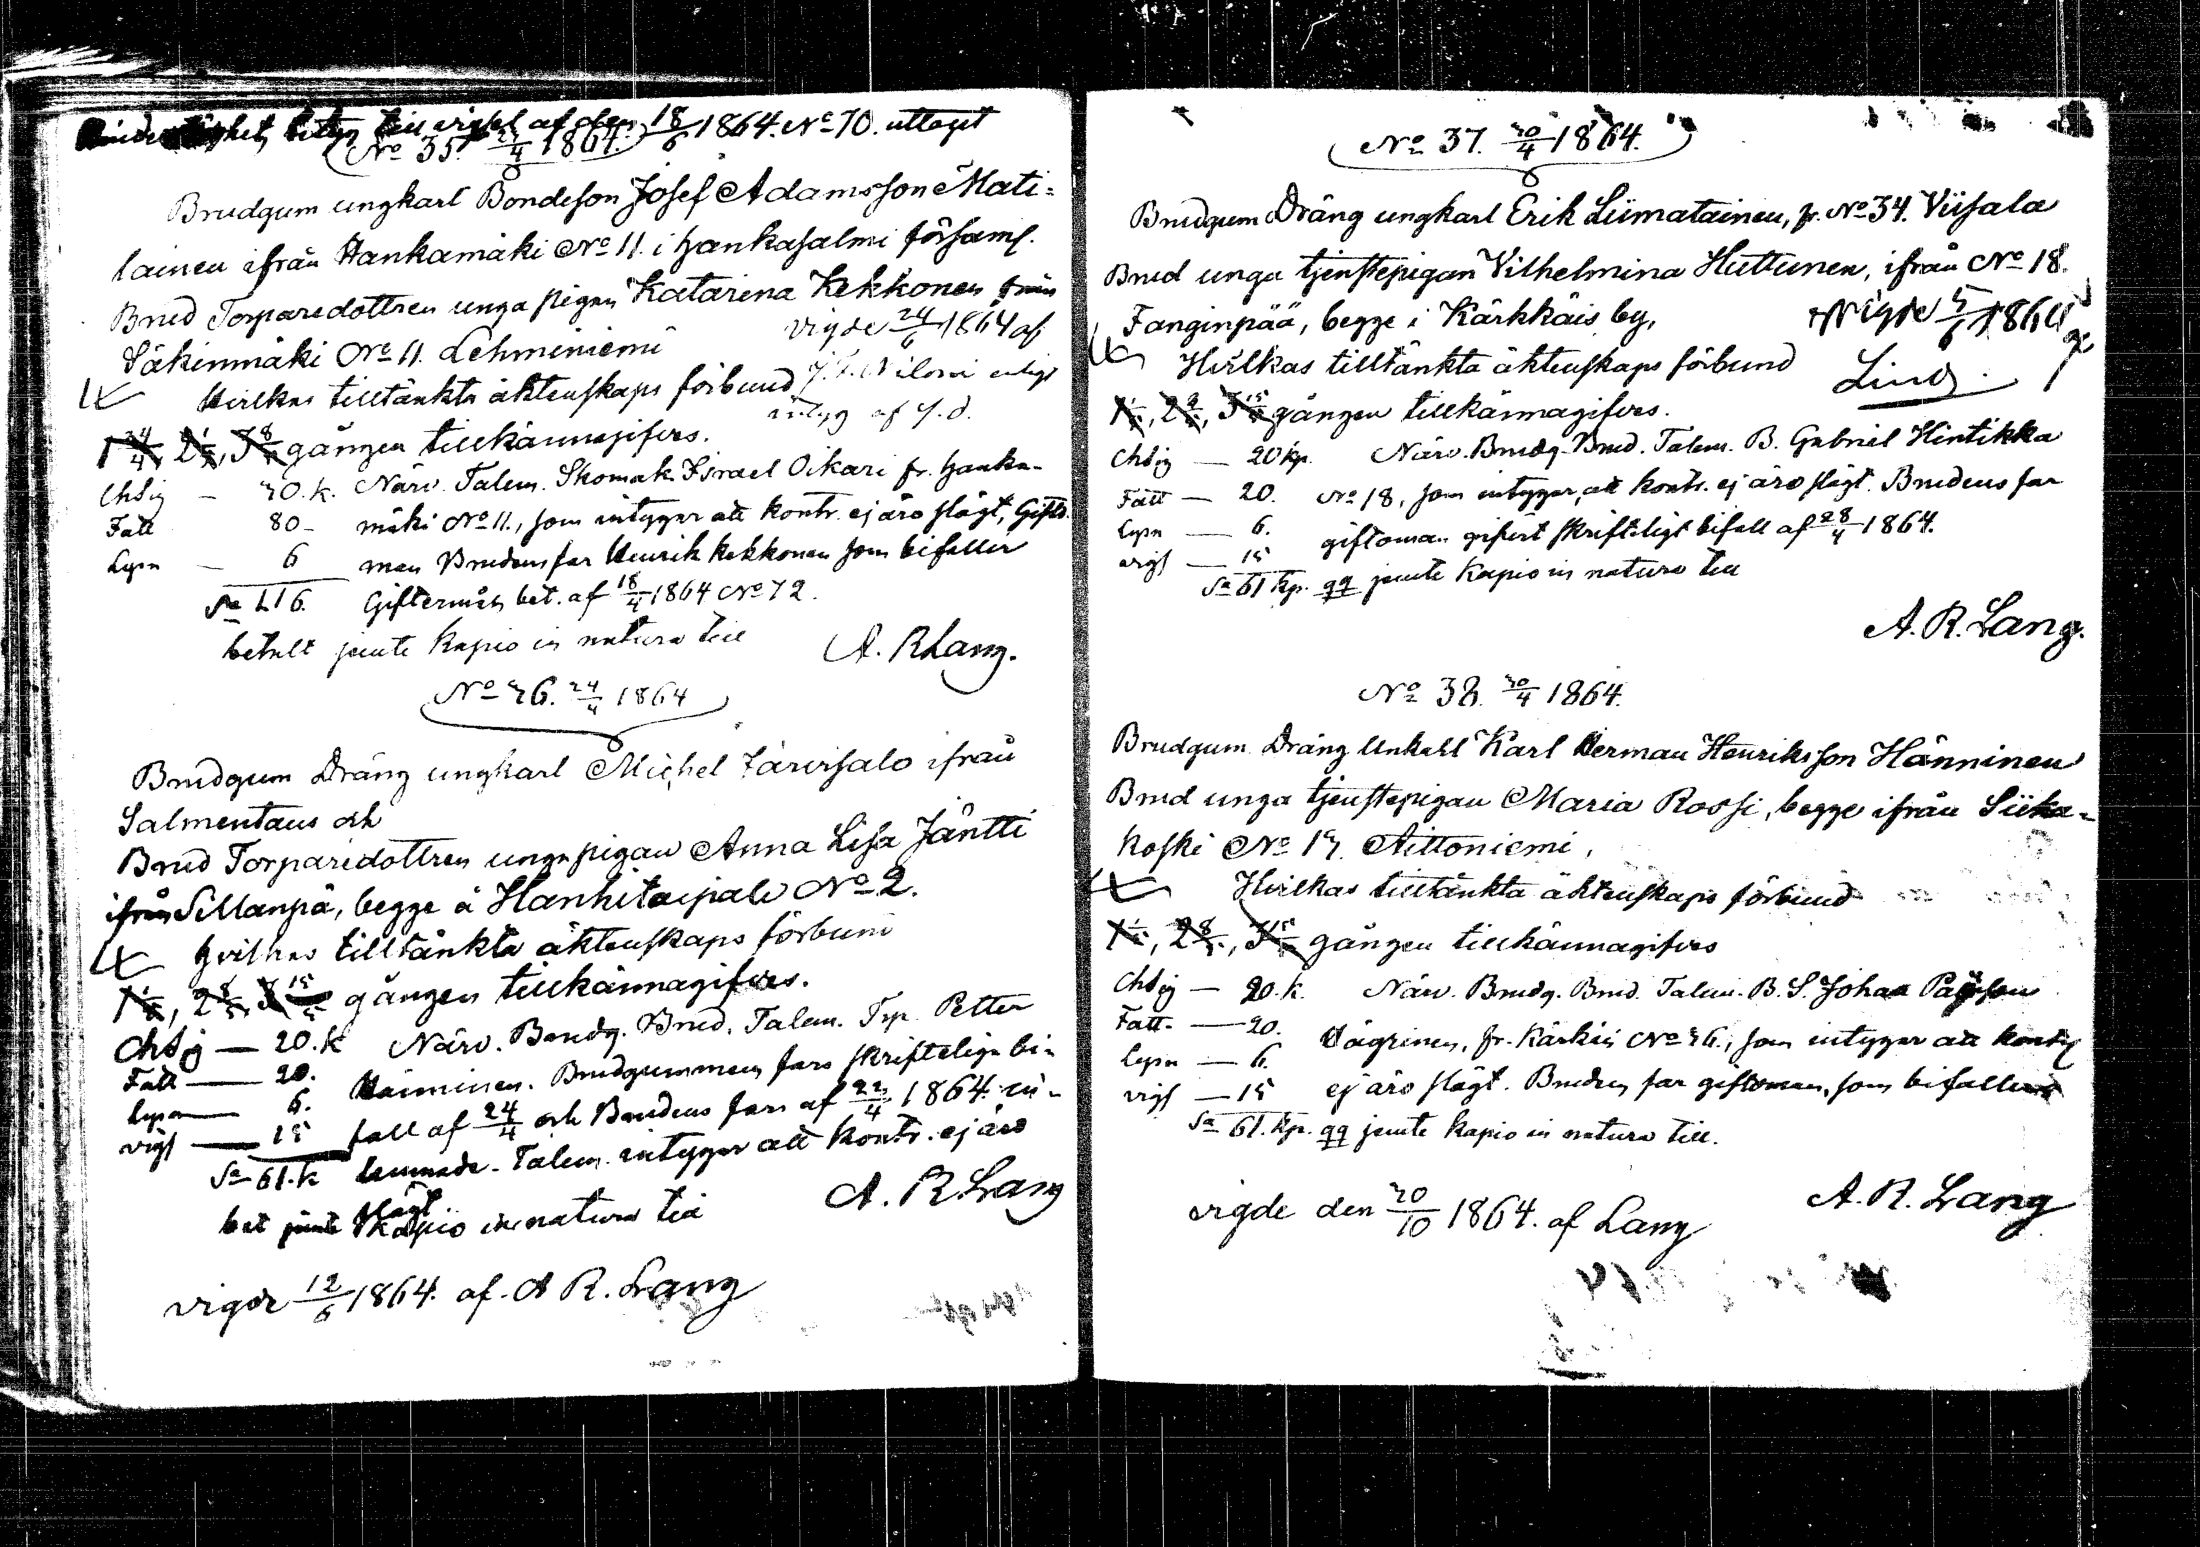 betyg till vigsel af den 18/6 1864. No 70. uttaget
No 35. 24/4 1864.
Brudgum ungkarl Bondeson Josef Adamsson Mati=
lainen ifrån Hankamäki No 11. i Hankasalmi församl.
Brud Torparedottren unga pigan Katarina Kekkonen från
Säkinmäki No 11. Lehminiemi
vigde 24/6 1864 af
Hvilkas tilltänkta äktenskaps förbund
enligt
intyg af s. d.
1 24/4, 2 1/5, 3 8/5 gången tillkännagifves.
Chsig — 30. k. Närv. Talem. Skomak. Israel Oikari fr. Hanka-
Fatt 80 - mäki No 11., som intygar att kontr. ej äro slägt, Gifto-
Lysn — 6 man Brudens far Henrik Kekkonen som bifaller
Sa 116. Giftermåls bet. af 18/4 1864 No 72.
betalt jemte Kapio in natura till
A. R Lang.
No 36. 24/4 1864
Brudgum Dräng ungkarl Michel Järvisalo ifrån
Salmentaus och
Brud Torparedottren unga pigan Anna Lisa Jäntti
ifrån Sillanpä, begge å Hanhitaipale No 2.
Hvilkas tilltänkta äktenskaps förbund
1 1/5, 2 8/5, 3 15/5 gången tillkännagifves.
Chsig — 20. k Närv. Brudg. Brud. Talem. Trp. Petter
Fatt — 20. Häminen. Brudgummens fars skriftelige bi-
Lysn — 6. fall af 24/4 och Brudens fars af 22/4 1864. in-
vigs — 15 lemnade. Talem. intygar att kontr. ej äro
Sa 61. k slägt
bet jemte Kapio in natura till
A. R. Lang
vigde 12/6 1864. af. A R. Lang
No 37. 30/4 1864.
Brudgum Dräng ungkarl Erik Liimatainen, fr. No 34. Viisala
Brud unga tjenstepigan Vilhelmina Huttunen, ifrån No 18.
Fanginpää, begge i Kärkkäis by,
Vigde 5/6 1864
Hvilkas tilltänkta äktenskaps förbund
Lind.
1 1/5, 2 8/5, 3 15/5 gången tillkännagifves.
Chsig — 20 kp. Närv. Brudg. Brud. Talem. B. Gabriel Hintikka
Fatt — 20. No 18, som intygar, att kontr. ej äro slägt. Brudens far
Lysn — 6. giftoman gifvit skrifteligt bifall af 28/4 1864.
vigs — 15
Sa 61 kp. qq jemte Kapio in natura till
A. R. Lang.
No 38. 30/4 1864.
Brudgum Dräng Unkarl Karl Herman Henriksson Hänninen
Brud unga tjenstepigan Maria Rossi, begge ifrån Siika-
koski No 13. Aittoniemi,
Hvilkas tilltänkta äktenskaps förbund
1 1/5, 2 8/5, 3 15/5 gången tillkännagifves
Chsig — 20. k. Närv. Brudg. Brud. Talem. B. S. Johan
Fatt. — 20. fr. Kärkäis No 36., som intygar att kontr.
Lysn — 6. ej äro slägt. Brudens far giftoman, som bifaller
vigs — 15
Sa 61. kp. qq jemte Kapio in natura till.
A. R. Lang
vigde den 30/10 1864. af Lang